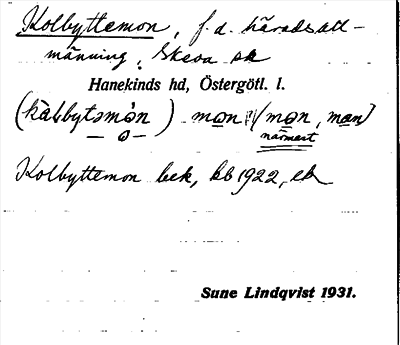 Kolbyttemon, f.d. häradsall-
männing, Skeda sk
Hanekinds hd, Östergötl. l.
(kàlbytəmòn) mɷn (mɷn, man)
närmast
Kolbyttemon bek, kb 1922, ek
Sune Lindqvist 1931.